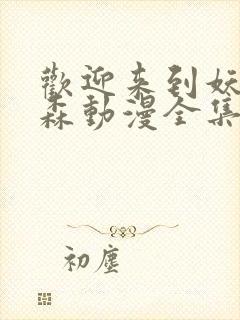 歡迎来到妖
森動漫全集
初塵